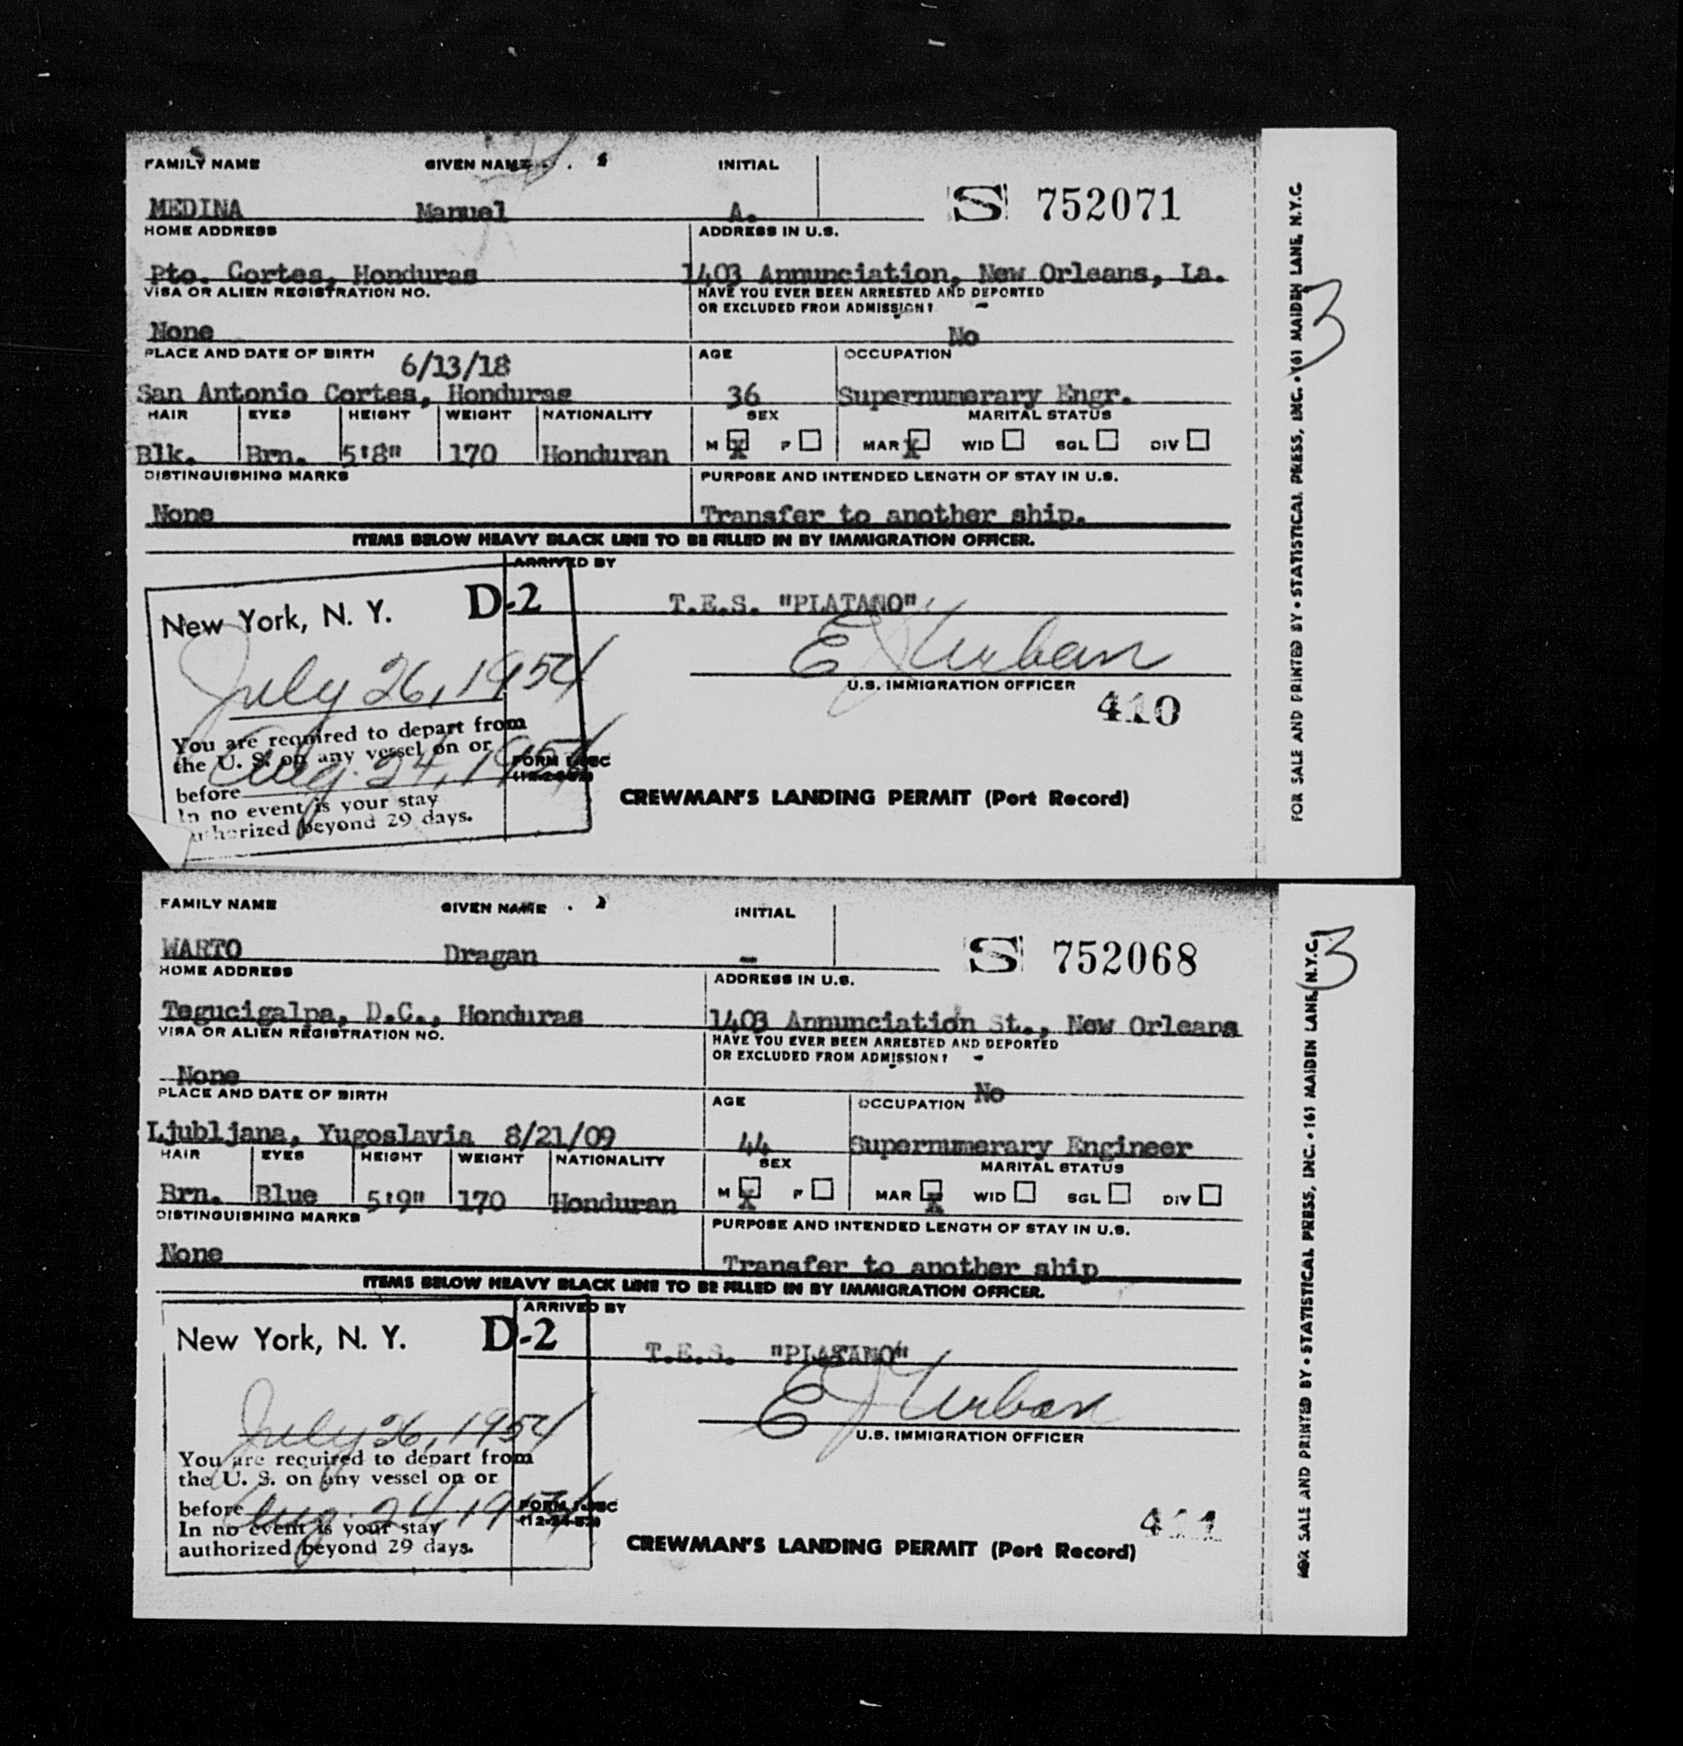 FAMILY NAME GIVEN NAME INITIAL
S 752071
MEDINA Manuel A.
HOME ADDRESS ADDRESS IN U.S.
Pto. Cortes, Honduras 1403 Annunciation, New Orleans, La.
VISA OR ALIEN REGISTRATION NO. HAVE YOU EVER BEEN ARRESTED AND DEPORTED
OR EXCLUDED FROM ADMISSION?
None No
PLACE AND DATE OF BIRTH 6/13/18 AGE OCCUPATION
San Antonio Cortes, Honduras 36 Supernumerary Engr.
HAIR EYES HEIGHT WEIGHT NATIONALITY SEX MARITAL STATUS
M X F MAR X WID SGL DIV
Blk. Brn. 5'8" 170 Honduran
DISTINGUISHING MARKS PURPOSE AND INTENDED LENGTH OF STAY IN U.S.
None Transfer to another ship.
ITEMS BELOW HEAVY BLACK LINE TO BE FILLED IN BY IMMIGRATION OFFICER.
ARRIVED BY
New York, N. Y. D-2 T.E.S. "PLATANO"
July 26, 1954 E J Urban
U.S. IMMIGRATION OFFICER
410
You are required to depart from
the U. S. on any vessel on or
before Aug. 24, 1954
In no event is your stay
authorized beyond 29 days.
FORM
CREWMAN'S LANDING PERMIT (Port Record)
FOR SALE AND PRINTED BY • STATISTICAL PRESS, INC. • 161 MAIDEN LANE, N.Y.C.
3
FAMILY NAME GIVEN NAME INITIAL
S 752068
WARTO Dragan -
HOME ADDRESS ADDRESS IN U.S.
Tegucigalpa, D.C., Honduras 1403 Annunciation St., New Orleans
VISA OR ALIEN REGISTRATION NO. HAVE YOU EVER BEEN ARRESTED AND DEPORTED
OR EXCLUDED FROM ADMISSION?
None No
PLACE AND DATE OF BIRTH AGE OCCUPATION
Ljubljana, Yugoslavia 8/21/09 44 Supernumerary Engineer
HAIR EYES HEIGHT WEIGHT NATIONALITY SEX MARITAL STATUS
M X F MAR X WID SGL DIV
Brn. Blue 5'9" 170 Honduran
DISTINGUISHING MARKS PURPOSE AND INTENDED LENGTH OF STAY IN U.S.
None Transfer to another ship
ITEMS BELOW HEAVY BLACK LINE TO BE FILLED IN BY IMMIGRATION OFFICER.
ARRIVED BY
New York, N. Y. D-2 T.E.S. "PLATANO"
July 26, 1954 E J Urban
U.S. IMMIGRATION OFFICER
You are required to depart from
the U. S. on any vessel on or
before Aug. 24, 1954
In no event is your stay
authorized beyond 29 days.
FORM
411
CREWMAN'S LANDING PERMIT (Port Record)
FOR SALE AND PRINTED BY • STATISTICAL PRESS, INC. • 161 MAIDEN LANE, N.Y.C.
3